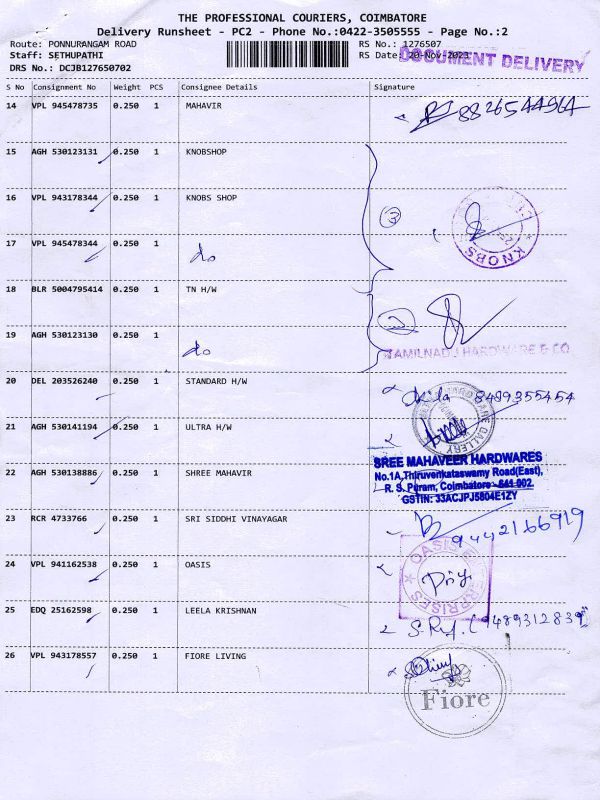 THE PROFESSIONAL COURIERS, COIMBATORE
Delivery Runsheet - PC2 - Phone No.:0422-3505555 - Page No.:2
Route: PONNURANGAM ROAD
RS No.: 1276507
Staff: SETHUPATHI
RS Date: 20-Nov-2023
DOCUMENT DELIVERY
DRS No.: DCJB127650702
S No Consignment No Weight PCS Consignee Details Signature
14 VPL 945478735 0.250 1 MAHAVIR 8826544964
15 AGH 530123131 0.250 1 KNOBSHOP
16 VPL 943178344 0.250 1 KNOBS SHOP
3
KNOBS
17 VPL 945478344 0.250 1 do
18 BLR 5004795414 0.250 1 TN H/W
2
19 AGH 530123130 0.250 1 do
TAMILNADU HARDWARE & CO
20 DEL 203526240 0.250 1 STANDARD H/W 8489355454
21 AGH 530141194 0.250 1 ULTRA H/W
HARDWARE GALLERY
SREE MAHAVEER HARDWARES
No.1A,Thiruvenkataswamy Road(East),
R. S. Puram, Coimbatore - 641 002.
GSTIN: 33ACJPJ5804E1ZY
22 AGH 530138886 0.250 1 SHREE MAHAVIR
23 RCR 4733766 0.250 1 SRI SIDDHI VINAYAGAR 9442166919
24 VPL 941162538 0.250 1 OASIS
OASIS ENTERPRISES
Priy
25 EDQ 25162598 0.250 1 LEELA KRISHNAN (9489312839)
26 VPL 943178557 0.250 1 FIORE LIVING
Fiore